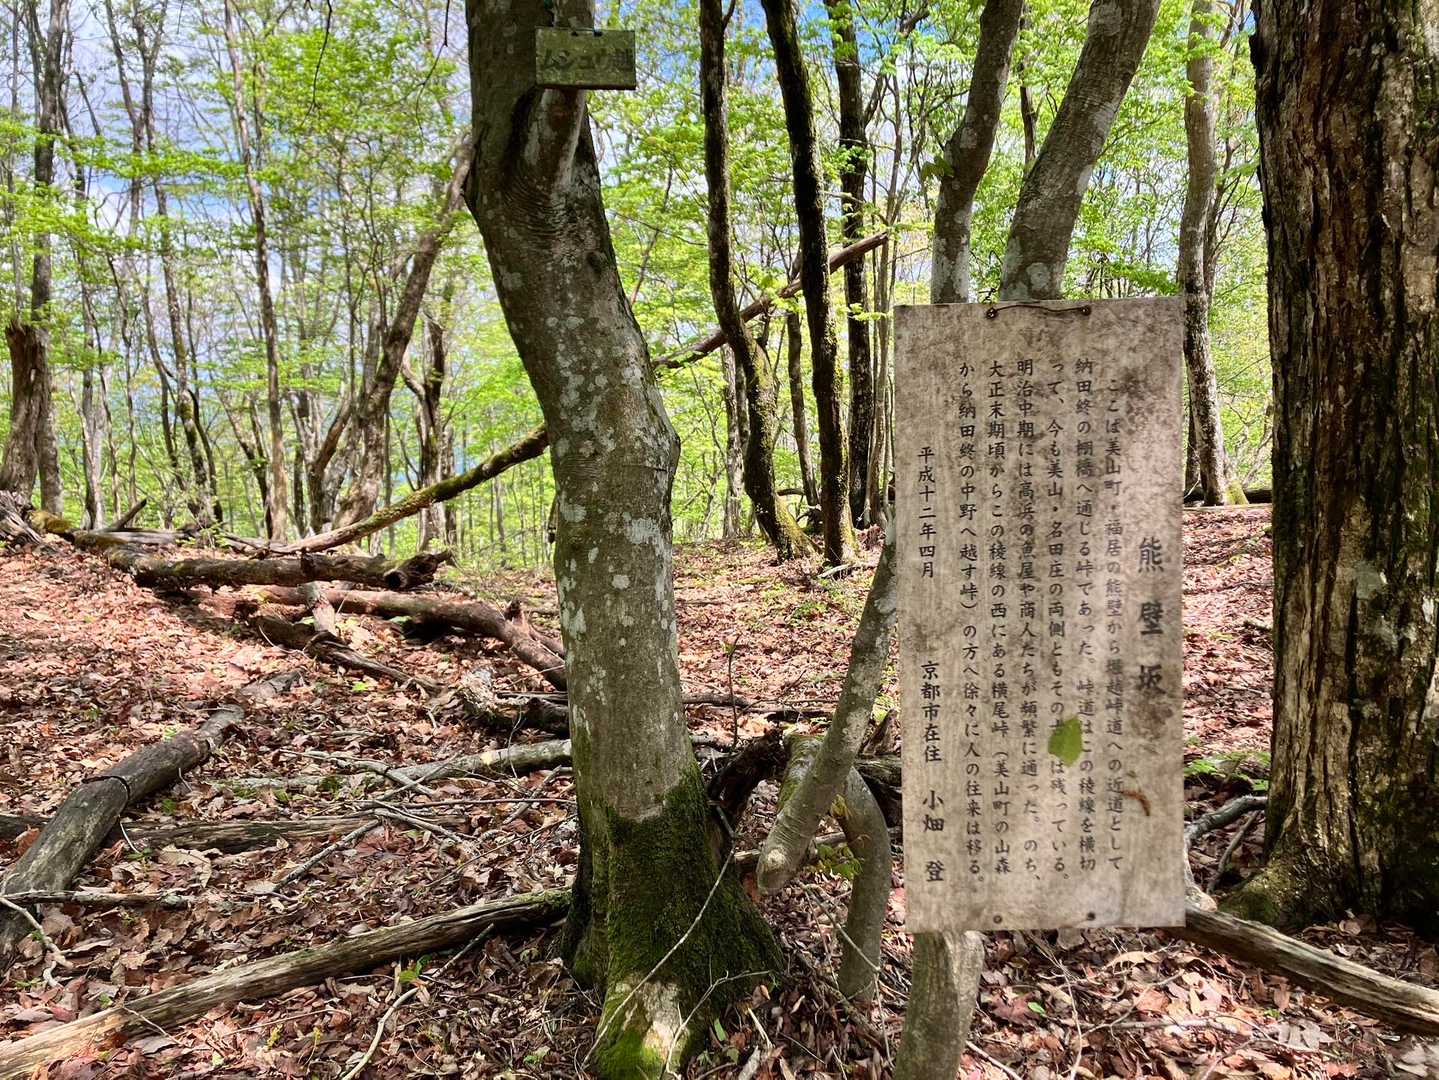 ムシュリ
熊壁坂
ここは美山町・福居の熊壁から堀越峠道への近道として
納田終の棚橋へ通じる峠であった。峠道はこの稜線を横切
って、今も美山・名田庄の両側ともその は残っている。
明治中期には高浜の魚屋や商人たちが頻繁に通った。のち、
大正末期頃からこの稜線の西にある横尾峠（美山町の山森
から納田終の中野へ越す峠）の方へ徐々に人の往来は移る。
平成十二年四月 京都市在住 小畑 登